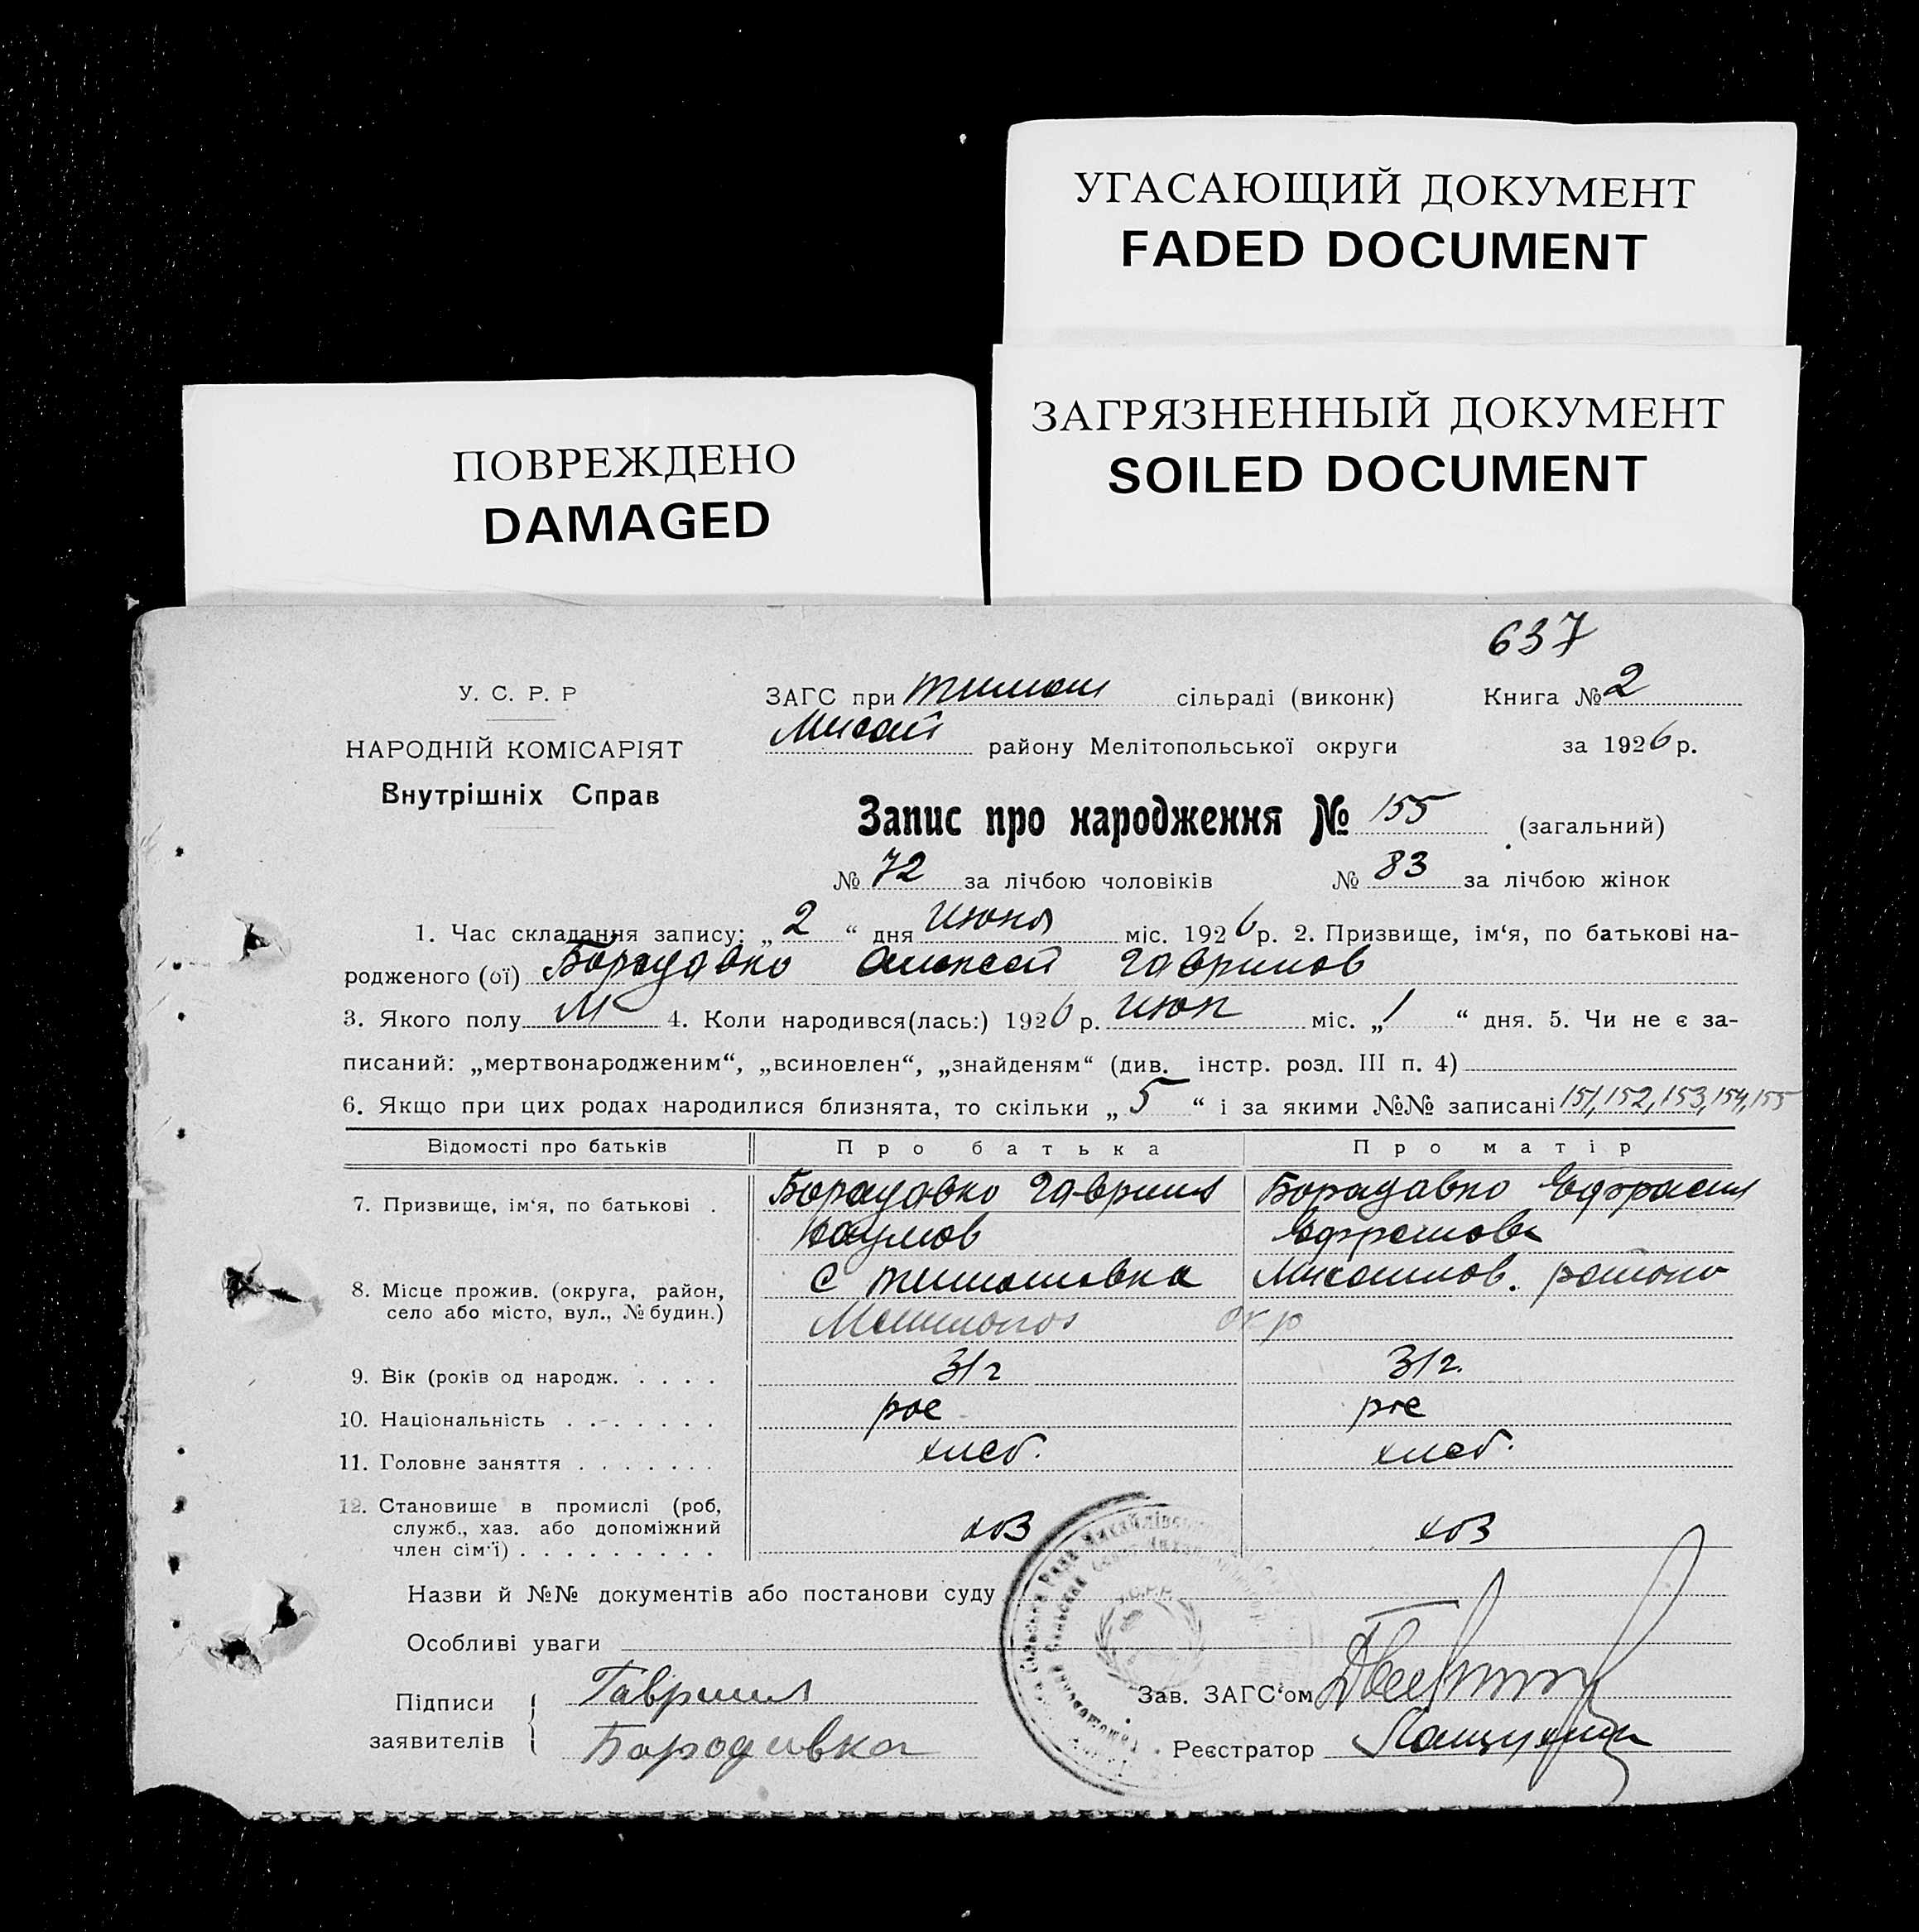 УГАСАЮЩИЙ ДОКУМЕНТ
FADED DOCUMENT
ЗАГРЯЗНЕННЫЙ ДОКУМЕНТ
SOILED DOCUMENT
ПОВРЕЖДЕНО
DAMAGED
637
У. С. Р. Р
НАРОДНІЙ КОМІСАРІЯТ
Внутрішніх Справ
ЗАГС при Тимош сільраді (виконк) Книга № 2
Михай району Мелітопольської округи за 1926 р.
Запис про народження № 155 (загальний)
№ 72 за лічбою чоловіків № 83 за лічбою жінок
1. Час складання запису: „2“ дня Июня міс. 1926 р. 2. Призвище, ім‘я, по батькові на-
родженого (ої) Борадавко Алексей Гаврилов
3. Якого полу М 4. Коли народився(лась:) 1926 р. Июн міс. „1“ дня. 5. Чи не є за-
писаний: „мертвонародженим“, „всиновлен“, „знайденям“ (див. інстр. розд. III п. 4)
6. Якщо при цих родах народилися близнята, то скільки „5“ і за якими №№ записані 151, 152, 153, 154, 155
Відомості про батьків Про батька Про матір
7. Призвище, ім‘я, по батькові . Борадавко Гавриил Борадавко Ефрасин
Наумов Ефремова
8. Місце прожив. (округа, район, село або місто, вул., № будин.) с Тимошовка Михайлов. района
Мелитопол окр
9. Вік (років од народж. . . . . 31 г 31 г.
10. Національність . . . . . . . рос рос
11. Головне заняття . . . . . . . хлеб. хлеб.
12. Становище в промислі (роб,
служб., хаз. або допоміжний
член сім‘ї) . . . . . . . . . хоз хоз
Назви й №№ документів або постанови суду
Особливі уваги
Підписи заявителів Гавриил
Бородавка
Зав. ЗАГС‘ом
Реєстратор
У.С.Р.Р.